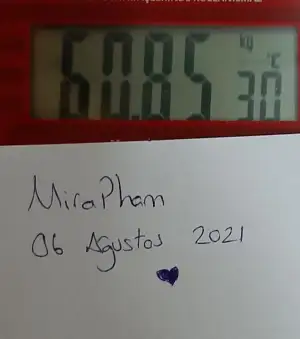 60.85 kg
°C
30
MiraPham
06 Agustos 2021